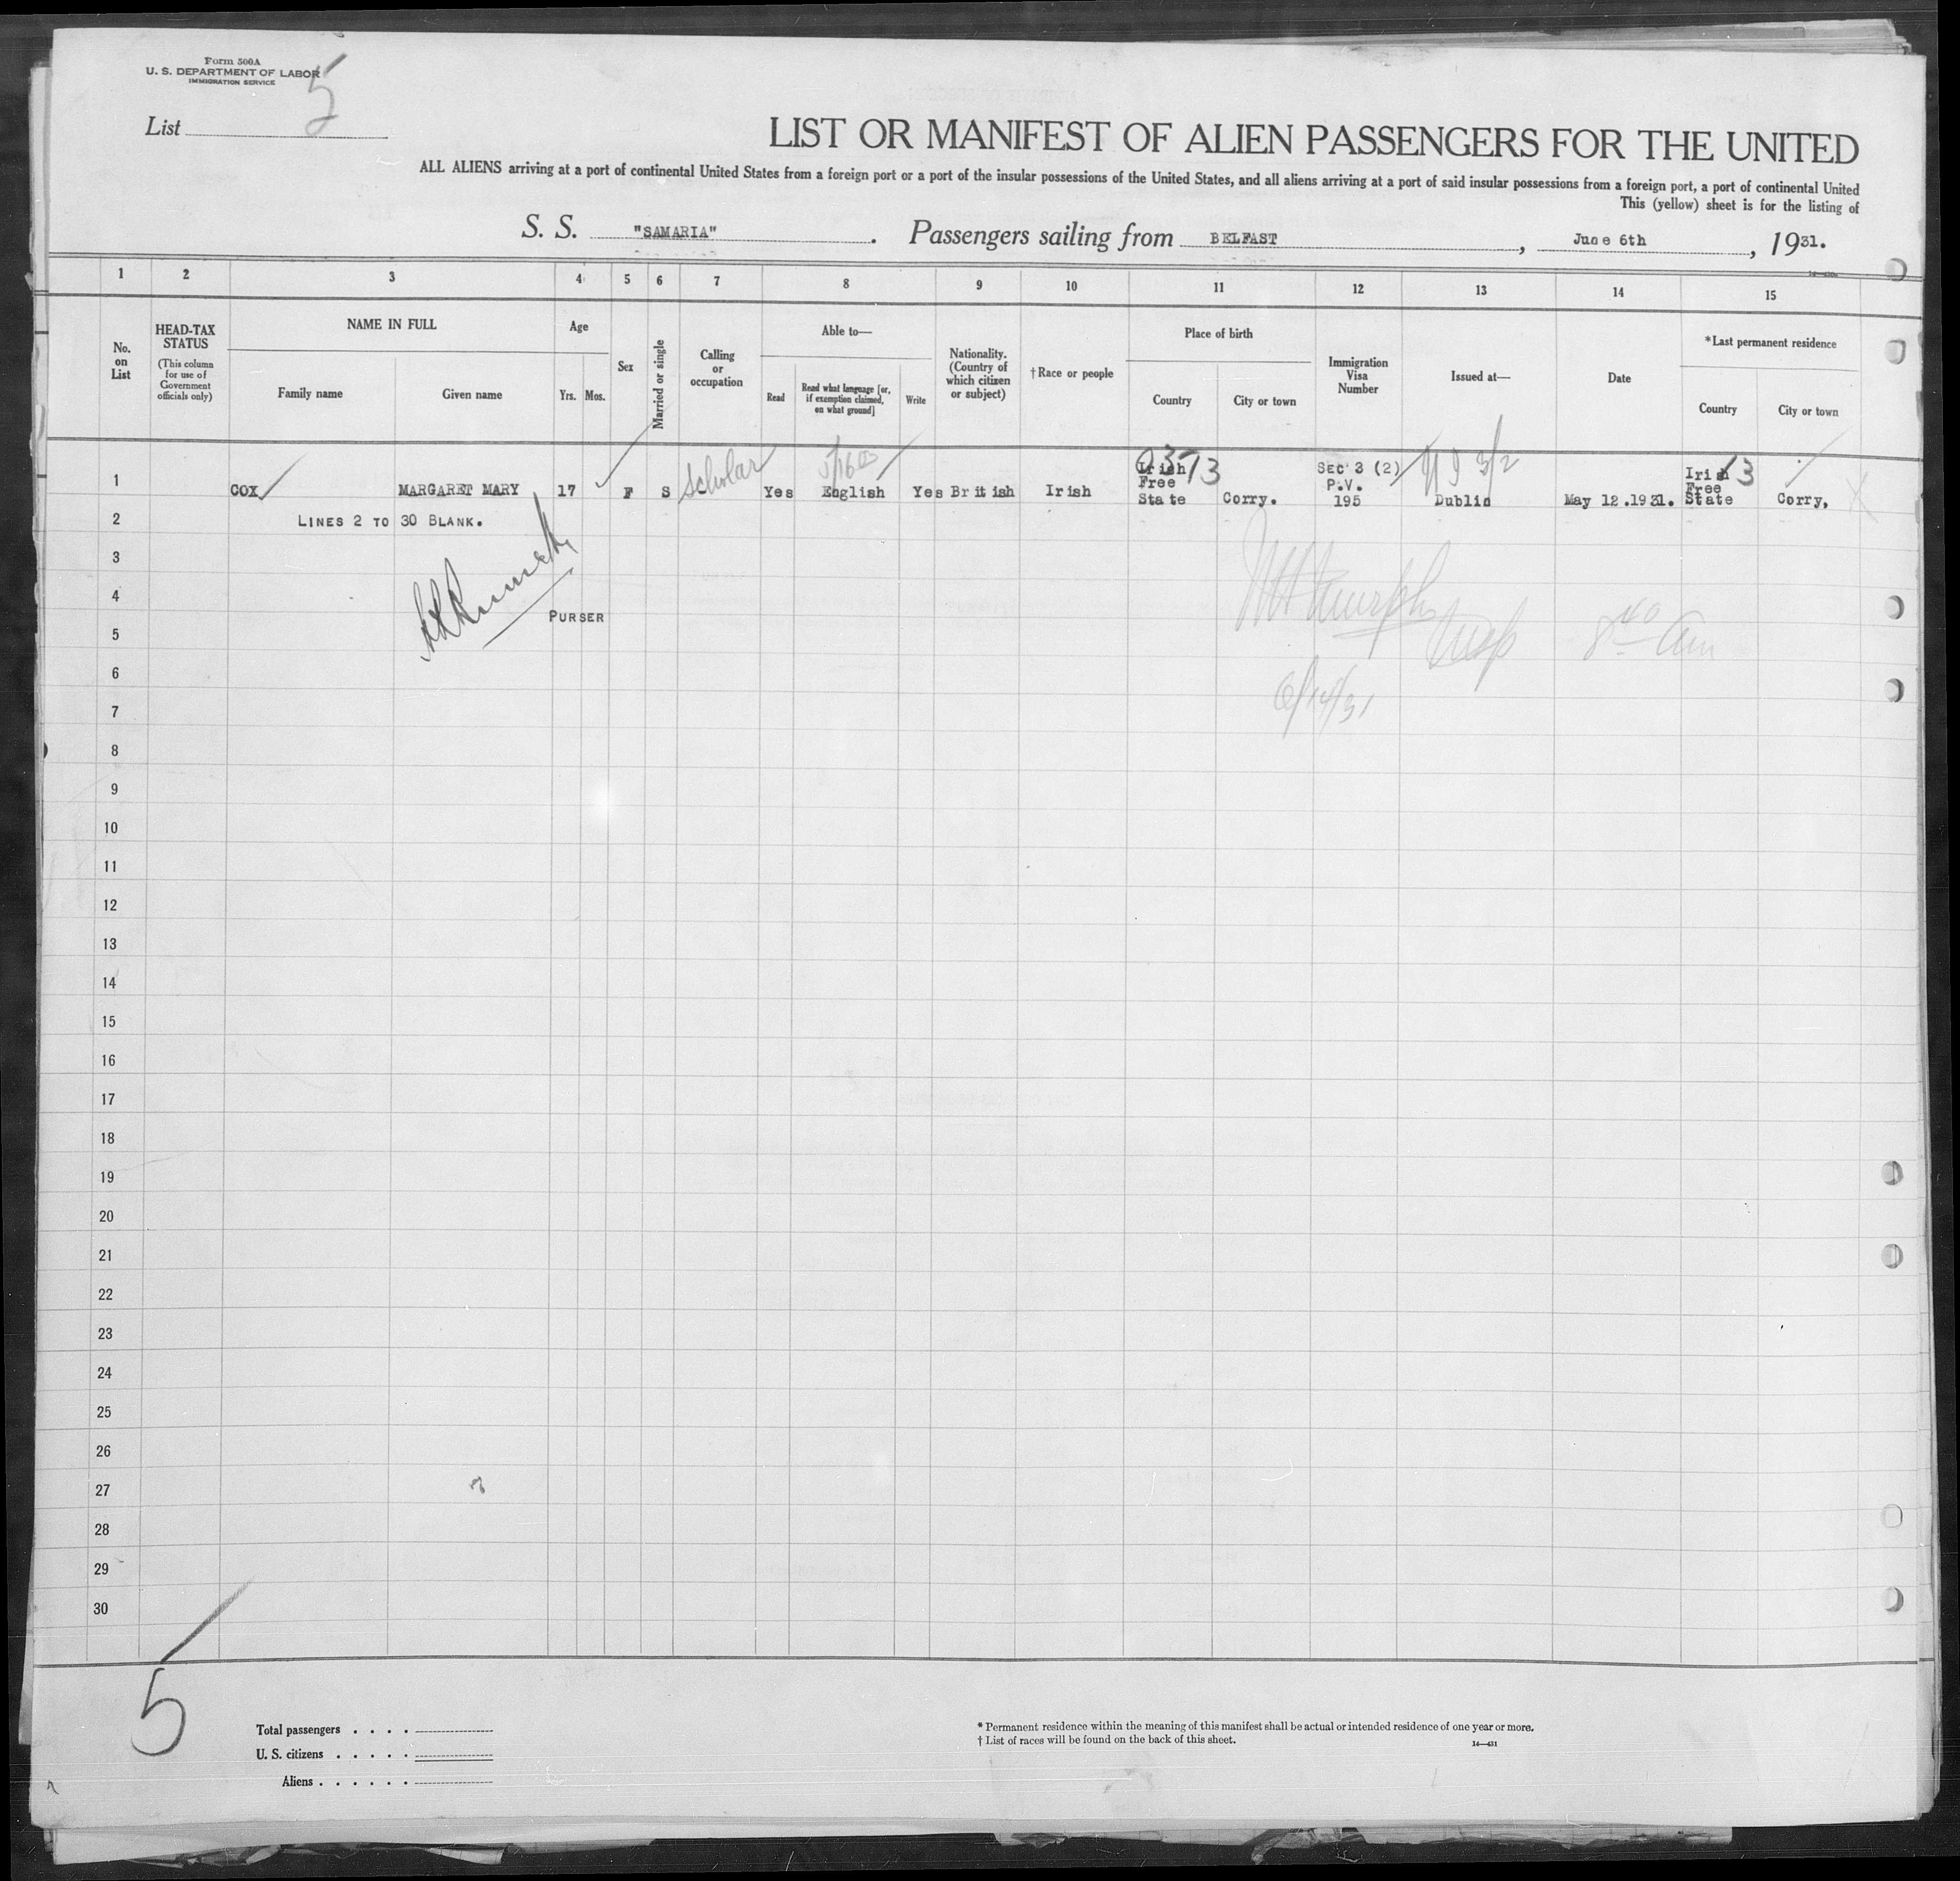 Form 500A
U. S. DEPARTMENT OF LABOR
IMMIGRATION SERVICE
List 5
LIST OR MANIFEST OF ALIEN PASSENGERS FOR THE UNITED
ALL ALIENS arriving at a port of continental United States from a foreign port or a port of the insular possessions of the United States, and all aliens arriving at a port of said insular possessions from a foreign port, a port of continental United
This (yellow) sheet is for the listing of
S. S. "SAMARIA". Passengers sailing from BELFAST, June 6th, 1931.
1 2 3 4 5 6 7 8 9 10 11 12 13 14 15
No. on List
HEAD-TAX STATUS
(This column for use of Government officials only)
NAME IN FULL
Family name
Given name
Age
Yrs. Mos.
Sex
Married or single
Calling or occupation
Able to—
Read
Read what language [or, if exemption claimed, on what ground]
Write
Nationality. (Country of which citizen or subject)
†Race or people
Place of birth
Country
City or town
Immigration Visa Number
Issued at—
Date
*Last permanent residence
Country
City or town
1 COX MARGARET MARY 17 F S Scholar Yes English Yes British Irish Irish Free State Corry. SEC 3 (2) P.V. 195 Dublin May 12.1931. Irish Free State Corry,
2 LINES 2 TO 30 BLANK.
3
4
PURSER
5
6
6/14/31
7
8
9
10
11
12
13
14
15
16
17
18
19
20
21
22
23
24
25
26
27
28
29
30
5
Total passengers . . . .
U. S. citizens . . . . .
Aliens . . . . . .
* Permanent residence within the meaning of this manifest shall be actual or intended residence of one year or more.
† List of races will be found on the back of this sheet.
14—431